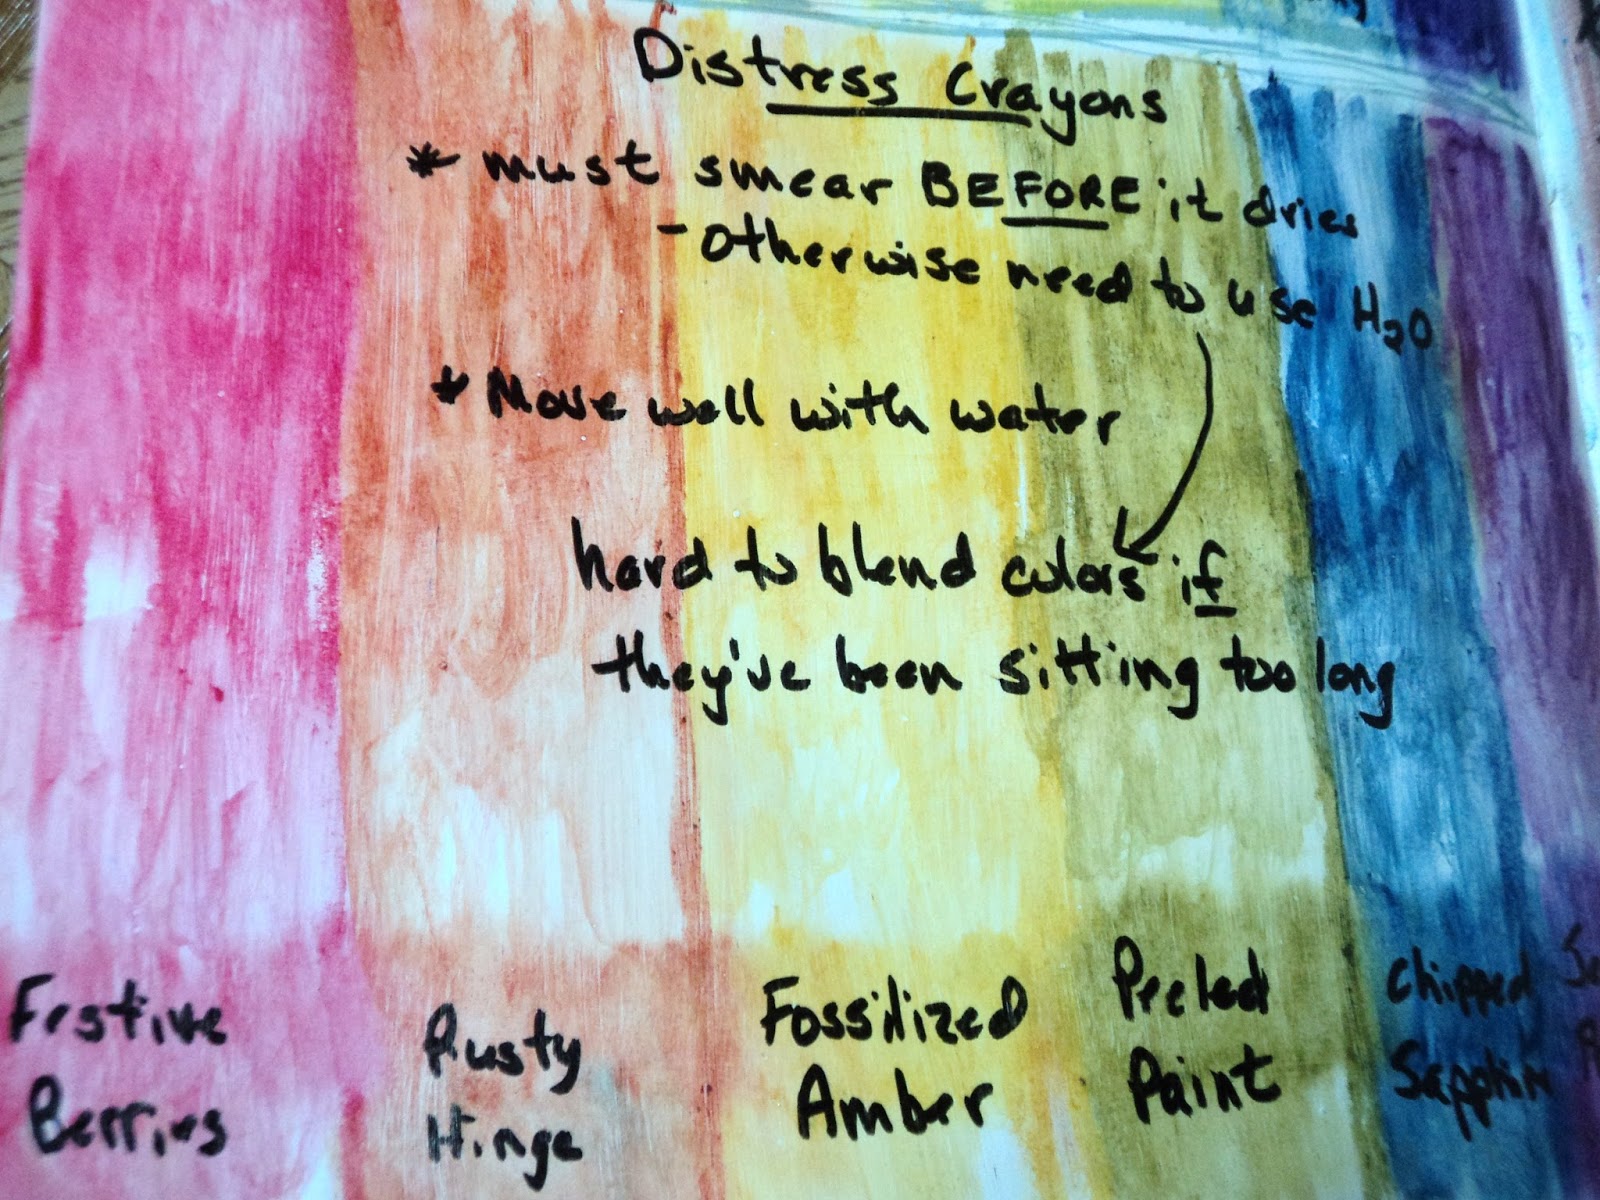 Distress Crayons
* must smear BEFORE it dries
- otherwise need to use H₂O
* Move well with water
hard to blend colors if
they've been sitting too long
Festive
Berries
Rusty
Hinge
Fossilized
Amber
Peeled
Paint
Chipped